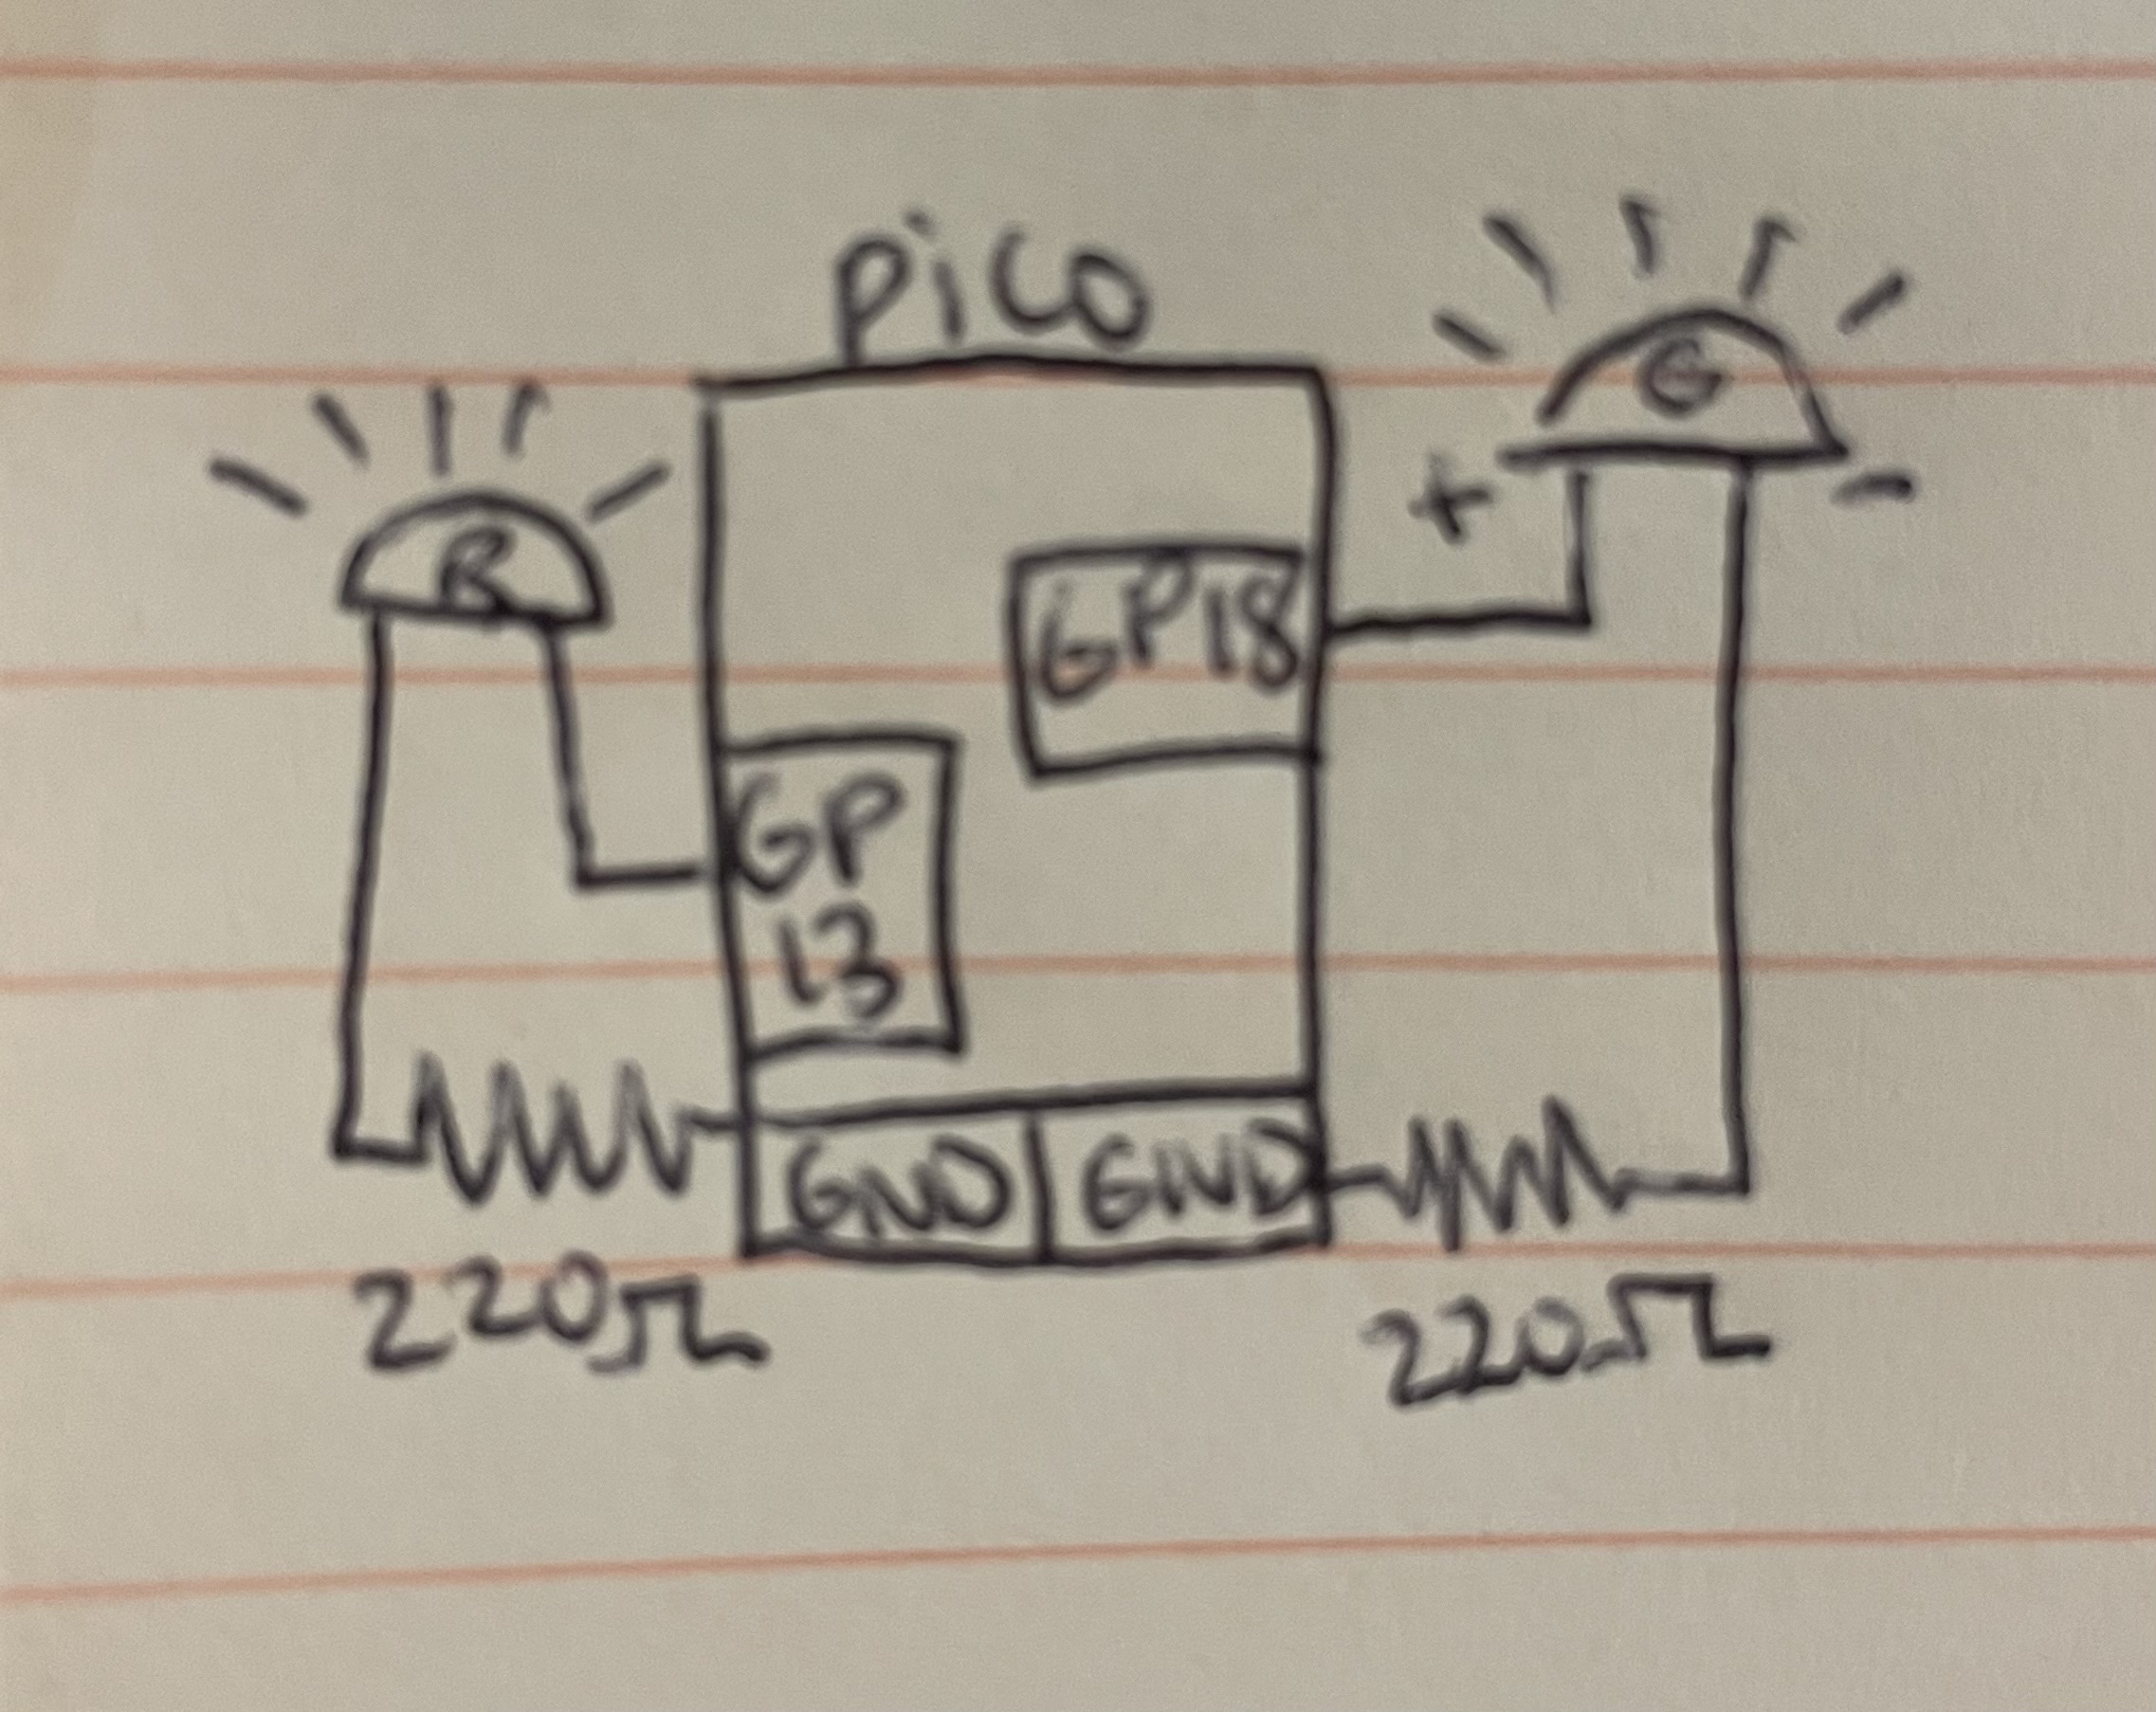 Pico
G
R
+
-
GP18
GP
13
GND GND
220Ω
220Ω